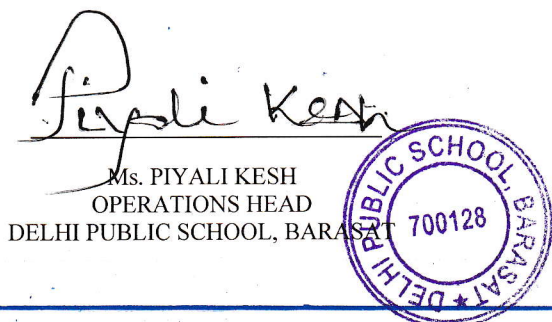 Piyali Kesh
Ms. PIYALI KESH
OPERATIONS HEAD
DELHI PUBLIC SCHOOL, BARASAT
DELHI PUBLIC SCHOOL, BARASAT ★
700128